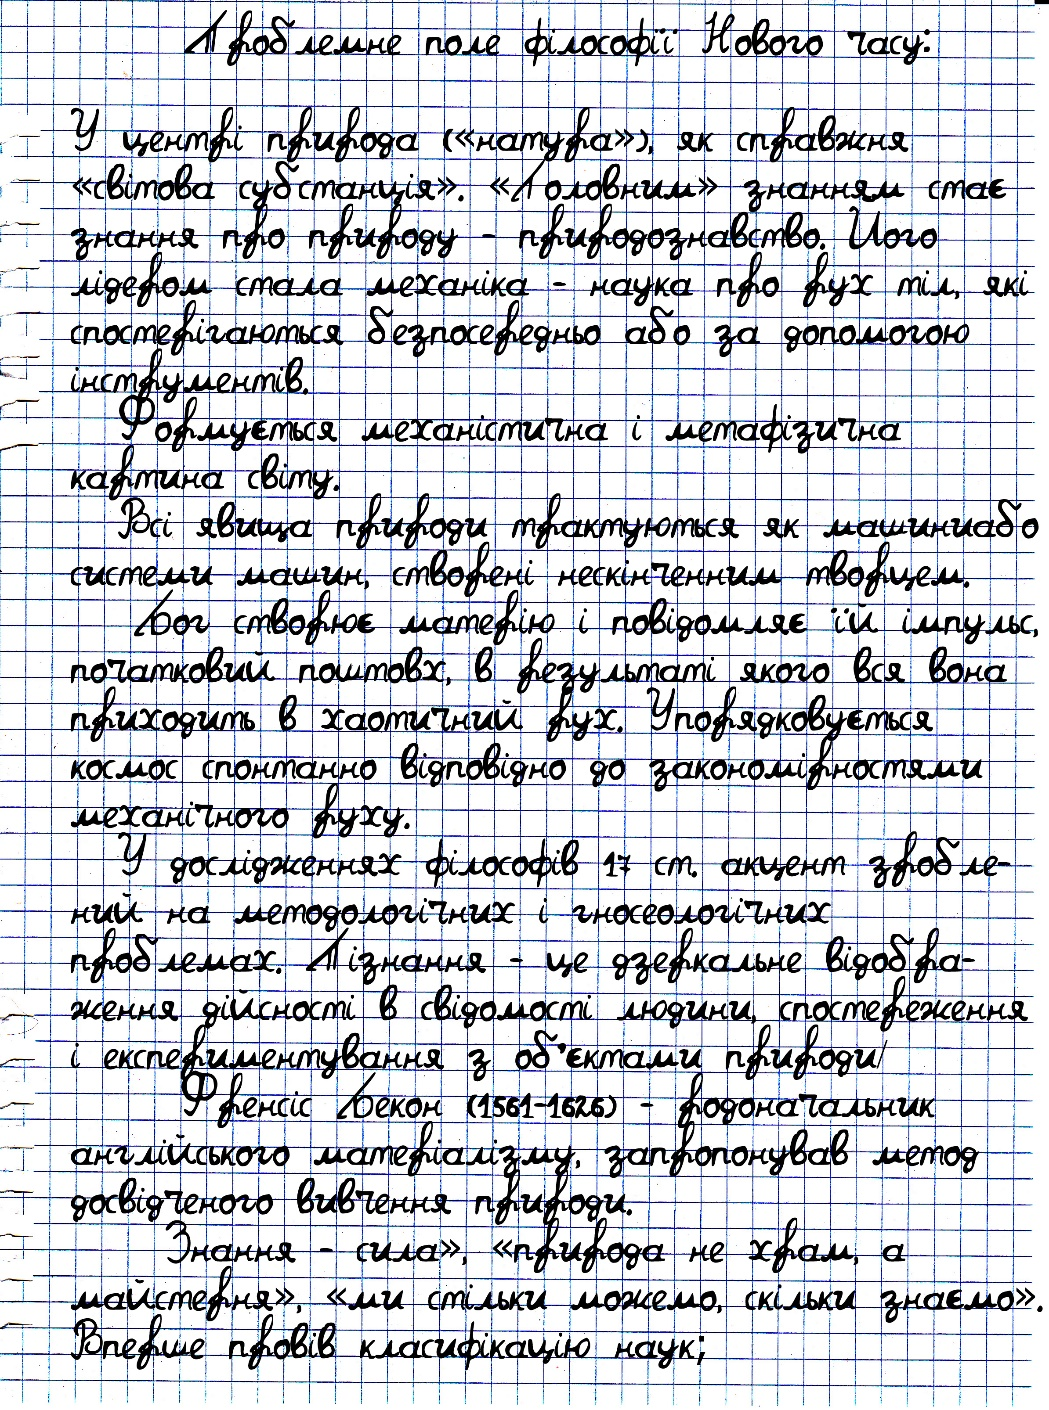 Проблемне поле філософії Нового часу:
У центрі природа («натура»), як справжня
«світова субстанція». «Головним» знанням стає
знання про природу - природознавство. Його
лідером стала механіка - наука про рух тіл, які
спостерігаються безпосередньо або за допомогою
інструментів.
Формується механістична і метафізична
картина світу.
Всі явища природи трактуються як машиниабо
системи машин, створені нескінченним творцем.
Бог створює матерію і повідомляє їй імпульс,
початковий поштовх, в результаті якого вся вона
приходить в хаотичний рух. Упорядковується
космос спонтанно відповідно до закономірностями
механічного руху.
У дослідженнях філософів 17 ст. акцент зробле-
ний на методологічних і гносеологічних
проблемах. Пізнання - це дзеркальне відобра-
ження дійсності в свідомості людини, спостереження
і експериментування з об'єктами природи/
Френсіс Бекон (1561-1626) - родоначальник
англійського матеріалізму, запропонував метод
досвідченого вивчення природи.
Знання - сила», «природа не храм, а
майстерня», «ми стільки можемо, скільки знаємо».
Вперше провів класифікацію наук;